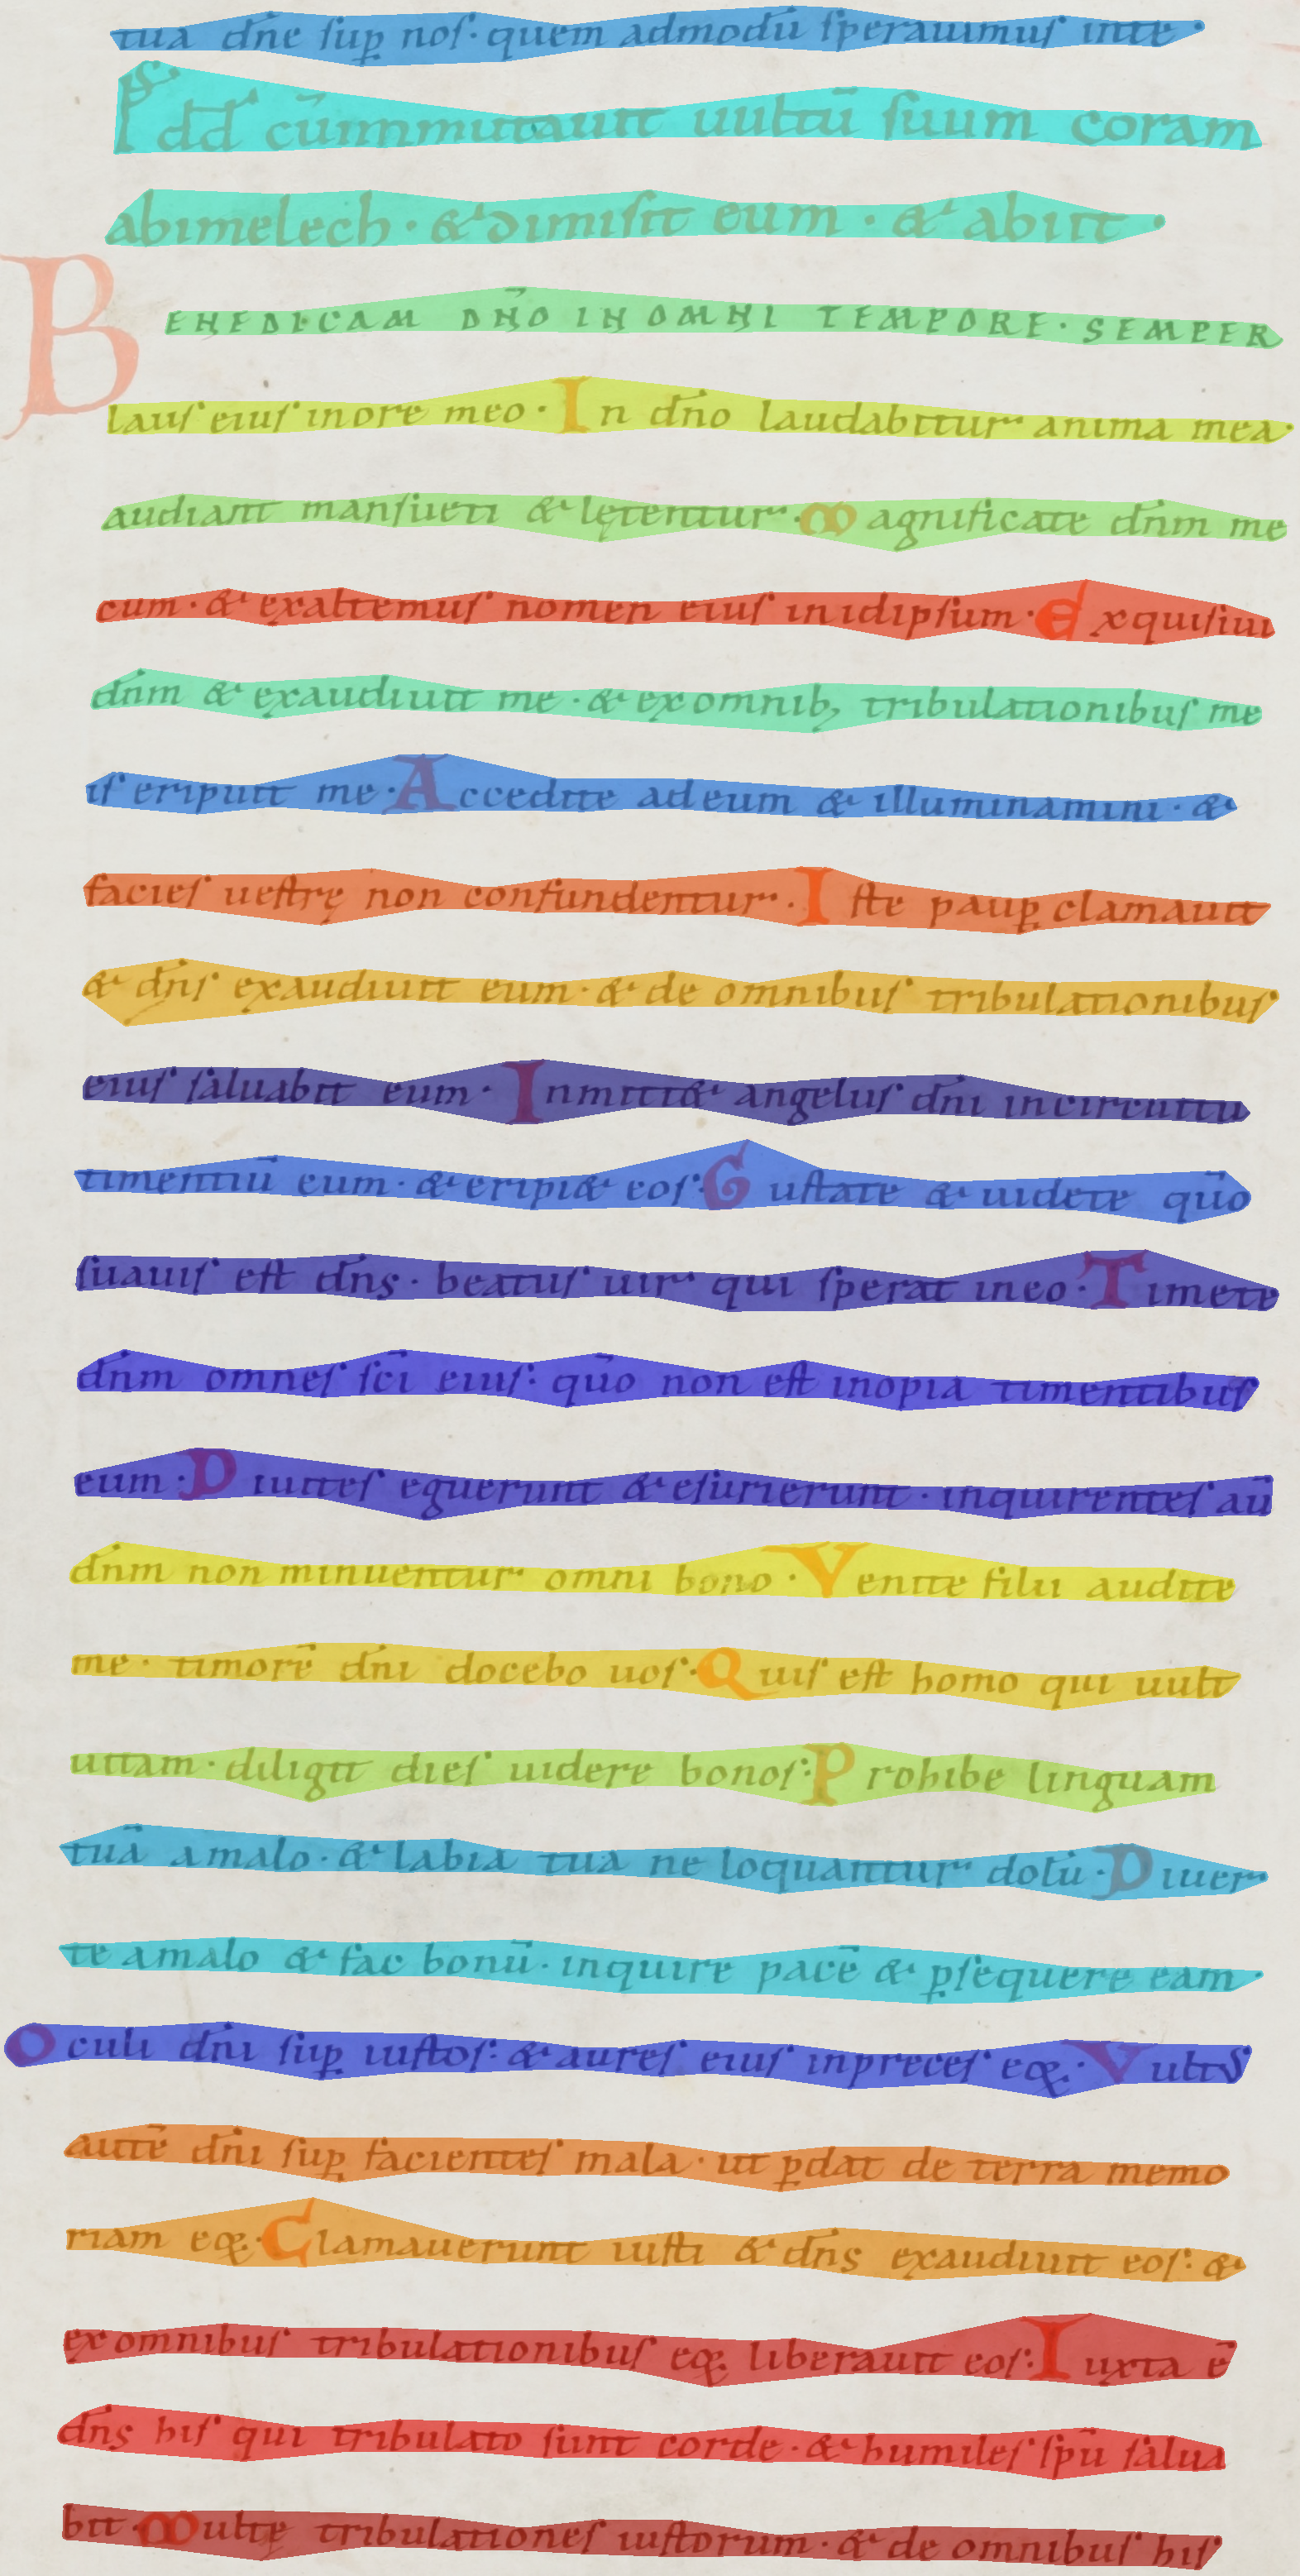 tua dn̄e sup̱ nos· quem admodū sperauimus inte·
ps̄ dd̄ cūinmutauit uultū suum coram
abimelech· & dimisit eum· & abiit·
BENEDICAM DN̄O IN OMNI TEMPORE· SEMPER
laus eius inore meo· In dn̄o laudabitur anima mea·
audiant mansueti & lętentur· Magnificate dn̄m me
cum· & exaltemus nomen eius inidipsum· Exquisiui
dn̄m & exaudiuit me· & ex omnib; tribulationibus me
is eripuit me· Accedite adeum & illuminamini· &
facies uestrę non confundentur· Iste paup̱ clamauit
& dn̄s exaudiuit eum· & de omnibus tribulationibus
eius saluabit eum· Inmitt& angelus dn̄i incircuitu
timentiū eum· & eripi& eos· Gustate & uidete qūo
suauis est dn̄s· beatus uir qui sperat ineo· Timete
dn̄m omnes sc̄i eius· qūo non est inopia timentibus
eum· Diuites eguerunt & esurierunt· inquirentes aū
dn̄m non minuentur omni bono· Venite filii audite
me· timorē dn̄i docebo uos· Quis est homo qui uult
uitam· diligit dies uidere bonos· Prohibe linguam
tuā amalo· & labia tua ne loquantur dolū· Diuer
te amalo & fac bonū· inquire pacē & p̱sequere eam·
Oculi dn̄i sup̱ iustos· & aures eius inpreces eoꝝ· Vultus
autē dn̄i sup̱ facientes mala· ut p̱dat de terra memo
riam eoꝝ· Clamauerunt iusti & dn̄s exaudiuit eos· &
ex omnibus tribulationibus eoꝝ liberauit eos· Iuxta ē
dn̄s his qui tribulato sunt corde· & humiles sp̄u salua
bit· Multę tribulationes iustorum· & de omnibus his